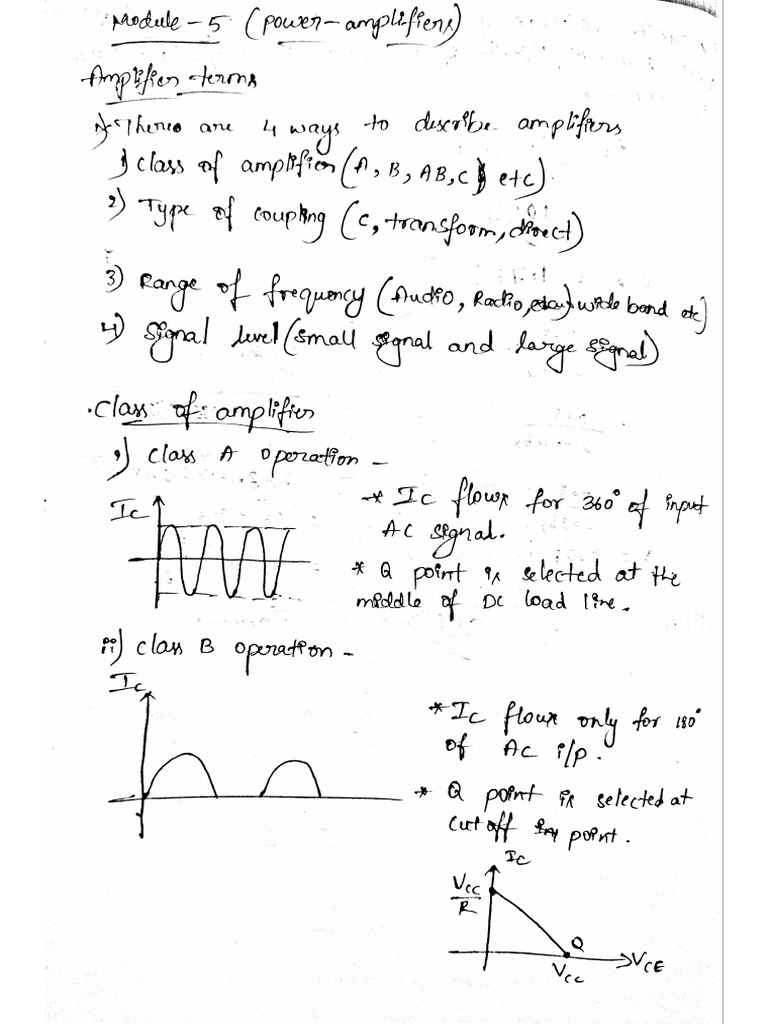 Module - 5 (power-amplifiers)
Amplifier terms
There are 4 ways to describe amplifiers
1) Class of amplifier (A, B, AB, C etc).
2) Type of coupling (C, transform, direct)
3) Range of frequency (Audio, Radio, wide band etc)
4) Signal level (small signal and large signal)
Class of amplifier
i) Class A operation -
Ic
* Ic flows for 360° of input
AC signal.
* Q point is selected at the
middle of DC load line.
ii) Class B operation -
Ic
* Ic flows only for 180°
of AC i/p.
* Q point is selected at
cut off point.
Ic
Vcc
R
Q
Vcc
VCE